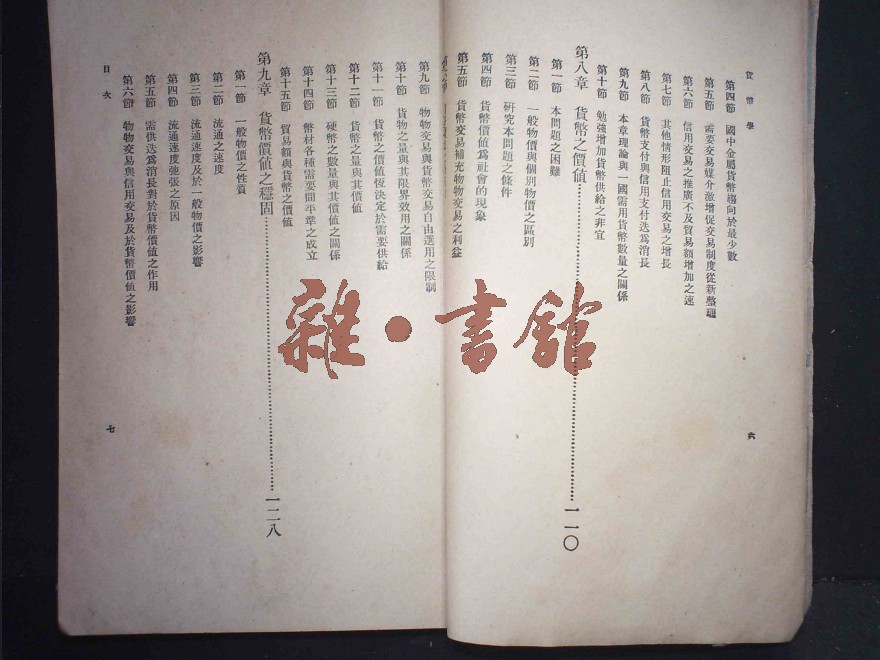 貨幣學
第四節 國中金屬貨幣趨向於最少數
第五節 需要交易媒介激增促交易制度從新整理
第六節 信用交易之推廣不及貿易額增加之速
第七節 其他情形阻止信用交易之增長
第八節 貨幣支付與信用支付迭爲消長
第九節 本章理論與一國需用貨幣數量之關係
第十節 勉強增加貨幣供給之非宜
第八章 貨幣之價値…………一一〇
第一節 本問題之困難
第二節 一般物價與個別物價之區別
第三節 研究本問題之條件
第四節 貨幣價値爲社會的現象
第五節 貨幣交易補充物物交易之利益
六
第九節 物物交易與貨幣交易自由選用之限制
第十節 貨物之量與其限界效用之關係
第十一節 貨幣之價値恆決定於需要供給
第十二節 貨幣之量與其價値
第十三節 硬幣之數量與其價値之關係
第十四節 幣材各種需要間平準之成立
第十五節 貿易額與貨幣之價値
第九章 貨幣價値之穩固…………一二八
第一節 一般物價之性質
第二節 流通之速度
第三節 流通速度及於一般物價之影響
第四節 流通速度弛張之原因
第五節 需供迭爲消長對於貨幣價値之作用
第六節 物物交易與信用交易及於貨幣價値之影響
目次
七
雜·書館